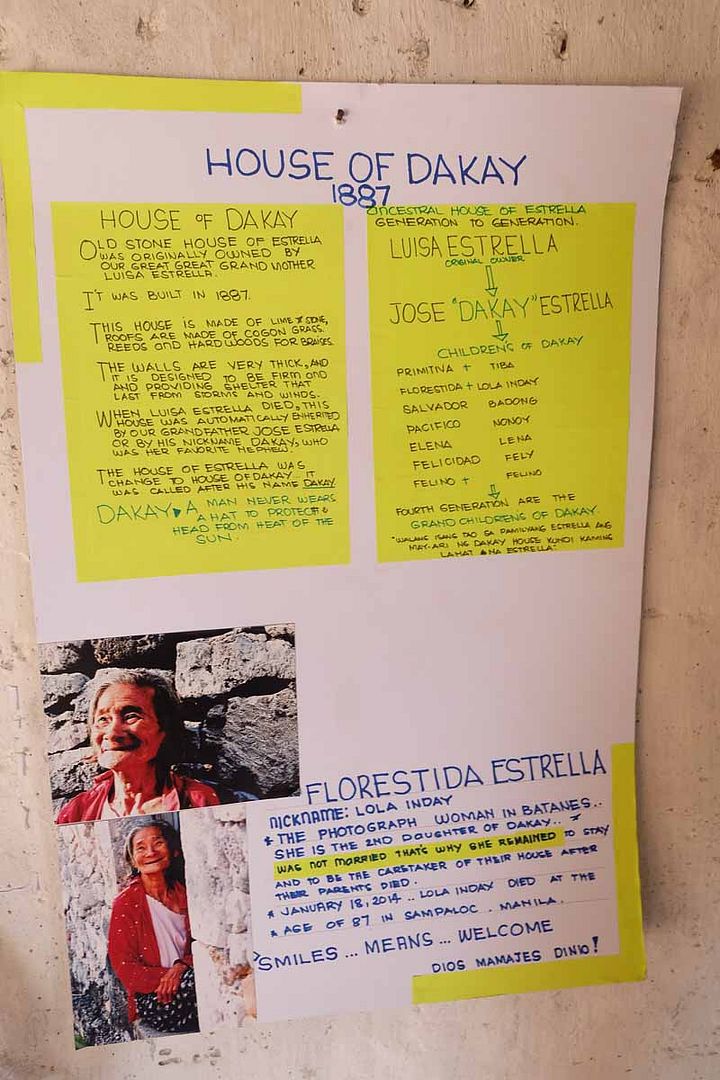 HOUSE OF DAKAY
1887
HOUSE OF DAKAY
OLD STONE HOUSE OF ESTRELLA
WAS ORIGINALLY OWNED BY
OUR GREAT GREAT GRAND MOTHER
LUISA ESTRELLA.
IT WAS BUILT IN 1887.
THIS HOUSE IS MADE OF LIME STONE,
ROOFS ARE MADE OF COGON GRASS.
REEDS AND HARD WOODS FOR BRAISES.
THE WALLS ARE VERY THICK, AND
IT IS DESIGNED TO BE FIRM AND
AND PROVIDING SHELTER THAT
LAST FROM STORMS AND WINDS.
WHEN LUISA ESTRELLA DIED, THIS
HOUSE WAS AUTOMATICALLY INHERITED
BY OUR GRANDFATHER JOSE ESTRELLA
OR BY HIS NICKNAME DAKAY, WHO
WAS HER FAVORITE NEPHEW.
THE HOUSE OF ESTRELLA WAS
CHANGE TO HOUSE OF DAKAY... IT
WAS CALLED AFTER HIS NAME DAKAY
DAKAY A MAN NEVER WEARS
A HAT TO PROTECT
HEAD FROM HEAT OF THE
SUN.
ANCESTRAL HOUSE OF ESTRELLA
GENERATION TO GENERATION.
LUISA ESTRELLA
ORIGINAL OWNER
JOSE "DAKAY" ESTRELLA
CHILDREN'S OF DAKAY
PRIMITIVA + TIBA
FLORESTIDA + LOLA INDAY
SALVADOR BADONG
PACIFICO NONOY
ELENA LENA
FELICIDAD FELY
FELINO + FELINO
FOURTH GENERATION ARE THE
GRAND CHILDRENS OF DAKAY.
"WALANG ISANG TAO SA PAMILYANG ESTRELLA ANG
MAY-ARI NG DAKAY HOUSE KUNDI KAMING
LAHAT NA ESTRELLA."
FLORESTIDA ESTRELLA
NICKNAME: LOLA INDAY
* THE PHOTOGRAPH WOMAN IN BATANES..
SHE IS THE 2ND DAUGHTER OF DAKAY..
WAS NOT MARRIED THAT'S WHY SHE REMAINED TO STAY
AND TO BE THE CARETAKER OF THEIR HOUSE AFTER
THEIR PARENTS DIED.
* JANUARY 18, 2014.. LOLA INDAY DIED AT THE
* AGE OF 87 IN SAMPALOC. MANILA.
SMILES... MEANS... WELCOME
DIOS MAMAJES DINIO!